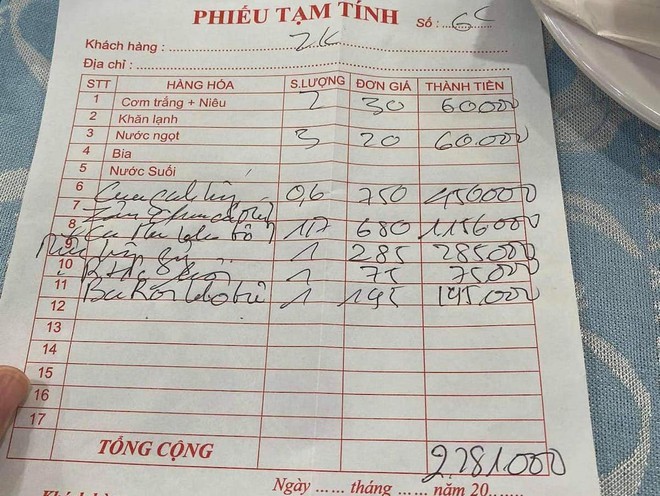 PHIẾU TẠM TÍNH
Số : 6C
Khách hàng : 2K
Địa chỉ :
STT HÀNG HÓA S.LƯỢNG ĐƠN GIÁ THÀNH TIỀN
1 Cơm trắng + Niêu 2 30 60.000
2 Khăn lạnh
3 Nước ngọt 3 20 60.000
4 Bia
5 Nước Suối
6 0,6 750 450000
7
8 1,7 680 1156000
9 1 285 285000
10 1 75 75000
11 1 195 195.000
12
13
14
15
16
17
TỔNG CỘNG 2281.000
Ngày ...... tháng ...... năm 20......